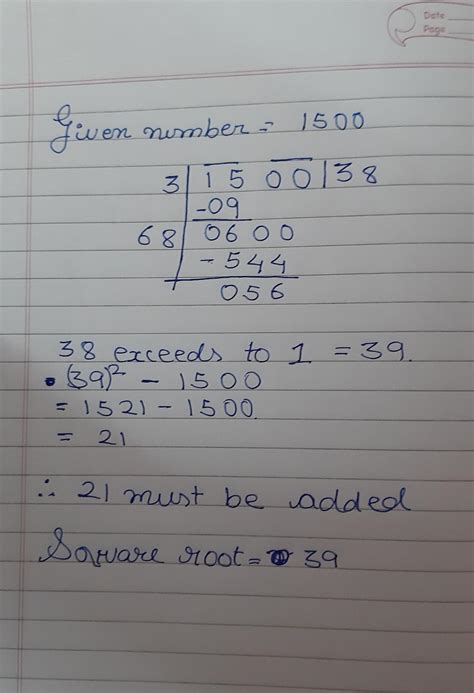 Date
Page
Given number = 1500
3 | 15 00 | 38
-09
68 | 0600
- 544
056
38 exceeds to 1 = 39.
(39)² - 1500
= 1521 - 1500
= 21
∴ 21 must be added
Square root = 39